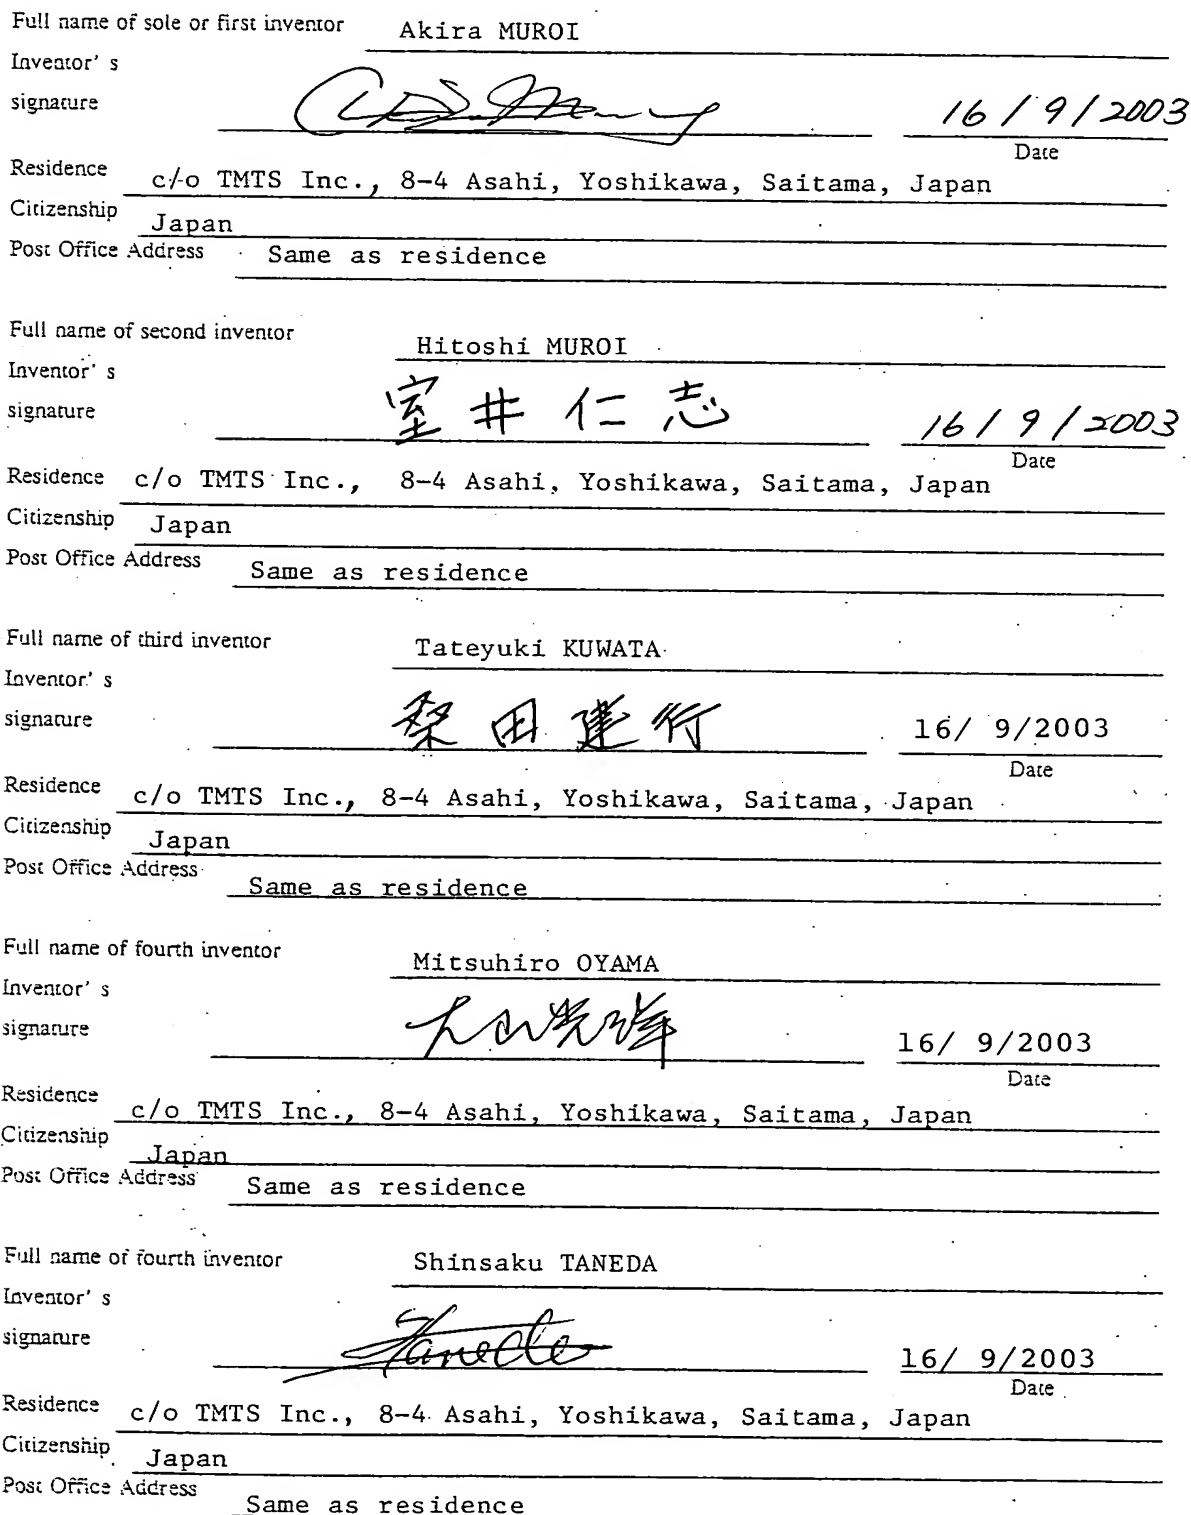 Full name of sole or first inventor Akira MUROI
Inventor's
signature 16/9/2003
Date
Residence c/o TMTS Inc., 8-4 Asahi, Yoshikawa, Saitama, Japan
Citizenship Japan
Post Office Address Same as residence
Full name of second inventor Hitoshi MUROI
Inventor's
signature 室井仁志 16/9/2003
Date
Residence c/o TMTS Inc., 8-4 Asahi, Yoshikawa, Saitama, Japan
Citizenship Japan
Post Office Address Same as residence
Full name of third inventor Tateyuki KUWATA
Inventor's
signature 桑田建行 16/ 9/2003
Date
Residence c/o TMTS Inc., 8-4 Asahi, Yoshikawa, Saitama, Japan
Citizenship Japan
Post Office Address Same as residence
Full name of fourth inventor Mitsuhiro OYAMA
Inventor's
signature 16/ 9/2003
Date
Residence c/o TMTS Inc., 8-4 Asahi, Yoshikawa, Saitama, Japan
Citizenship Japan
Post Office Address Same as residence
Full name of fourth inventor Shinsaku TANEDA
Inventor's
signature 16/ 9/2003
Date
Residence c/o TMTS Inc., 8-4 Asahi, Yoshikawa, Saitama, Japan
Citizenship Japan
Post Office Address Same as residence